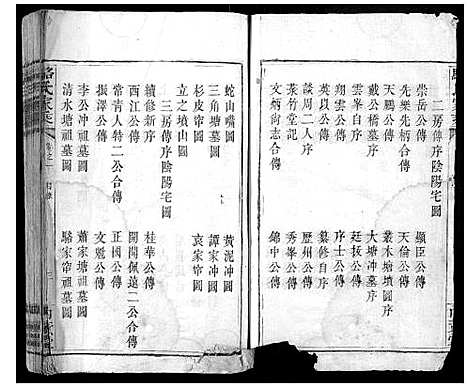 二房傳序陰陽宅圖
崇岳公傳
顯臣公傳
先樂先柄公傳
天倫公傳
天鵬公傳
叢木塘墳圖序
戴公橋墓序
大塘沖墓序
雲峯自序
廷拔公傳
翔雲公傳
序士公傳
英以公傳
纂修自序
談周二人傳
歷州公傳
菉竹堂記
秀峯公傳
文炳南哲傳
錦中公傳
蛇山嘴圖
三角塘墓圖
黃泥沖圖
杉皮帘圖
譚家沖圖
立之墳山圖
袁家帘圖
三房傳序陰陽宅圖
續修新序
桂華公傳
西江公傳
開聞佩遠二公合傳
常青人特二公合傳
正國公傳
振澤公傳
文魁公傳
李公沖墓圖
蕭家塘祖墓圖
清水塘祖墓圖
駱家帘祖墓圖